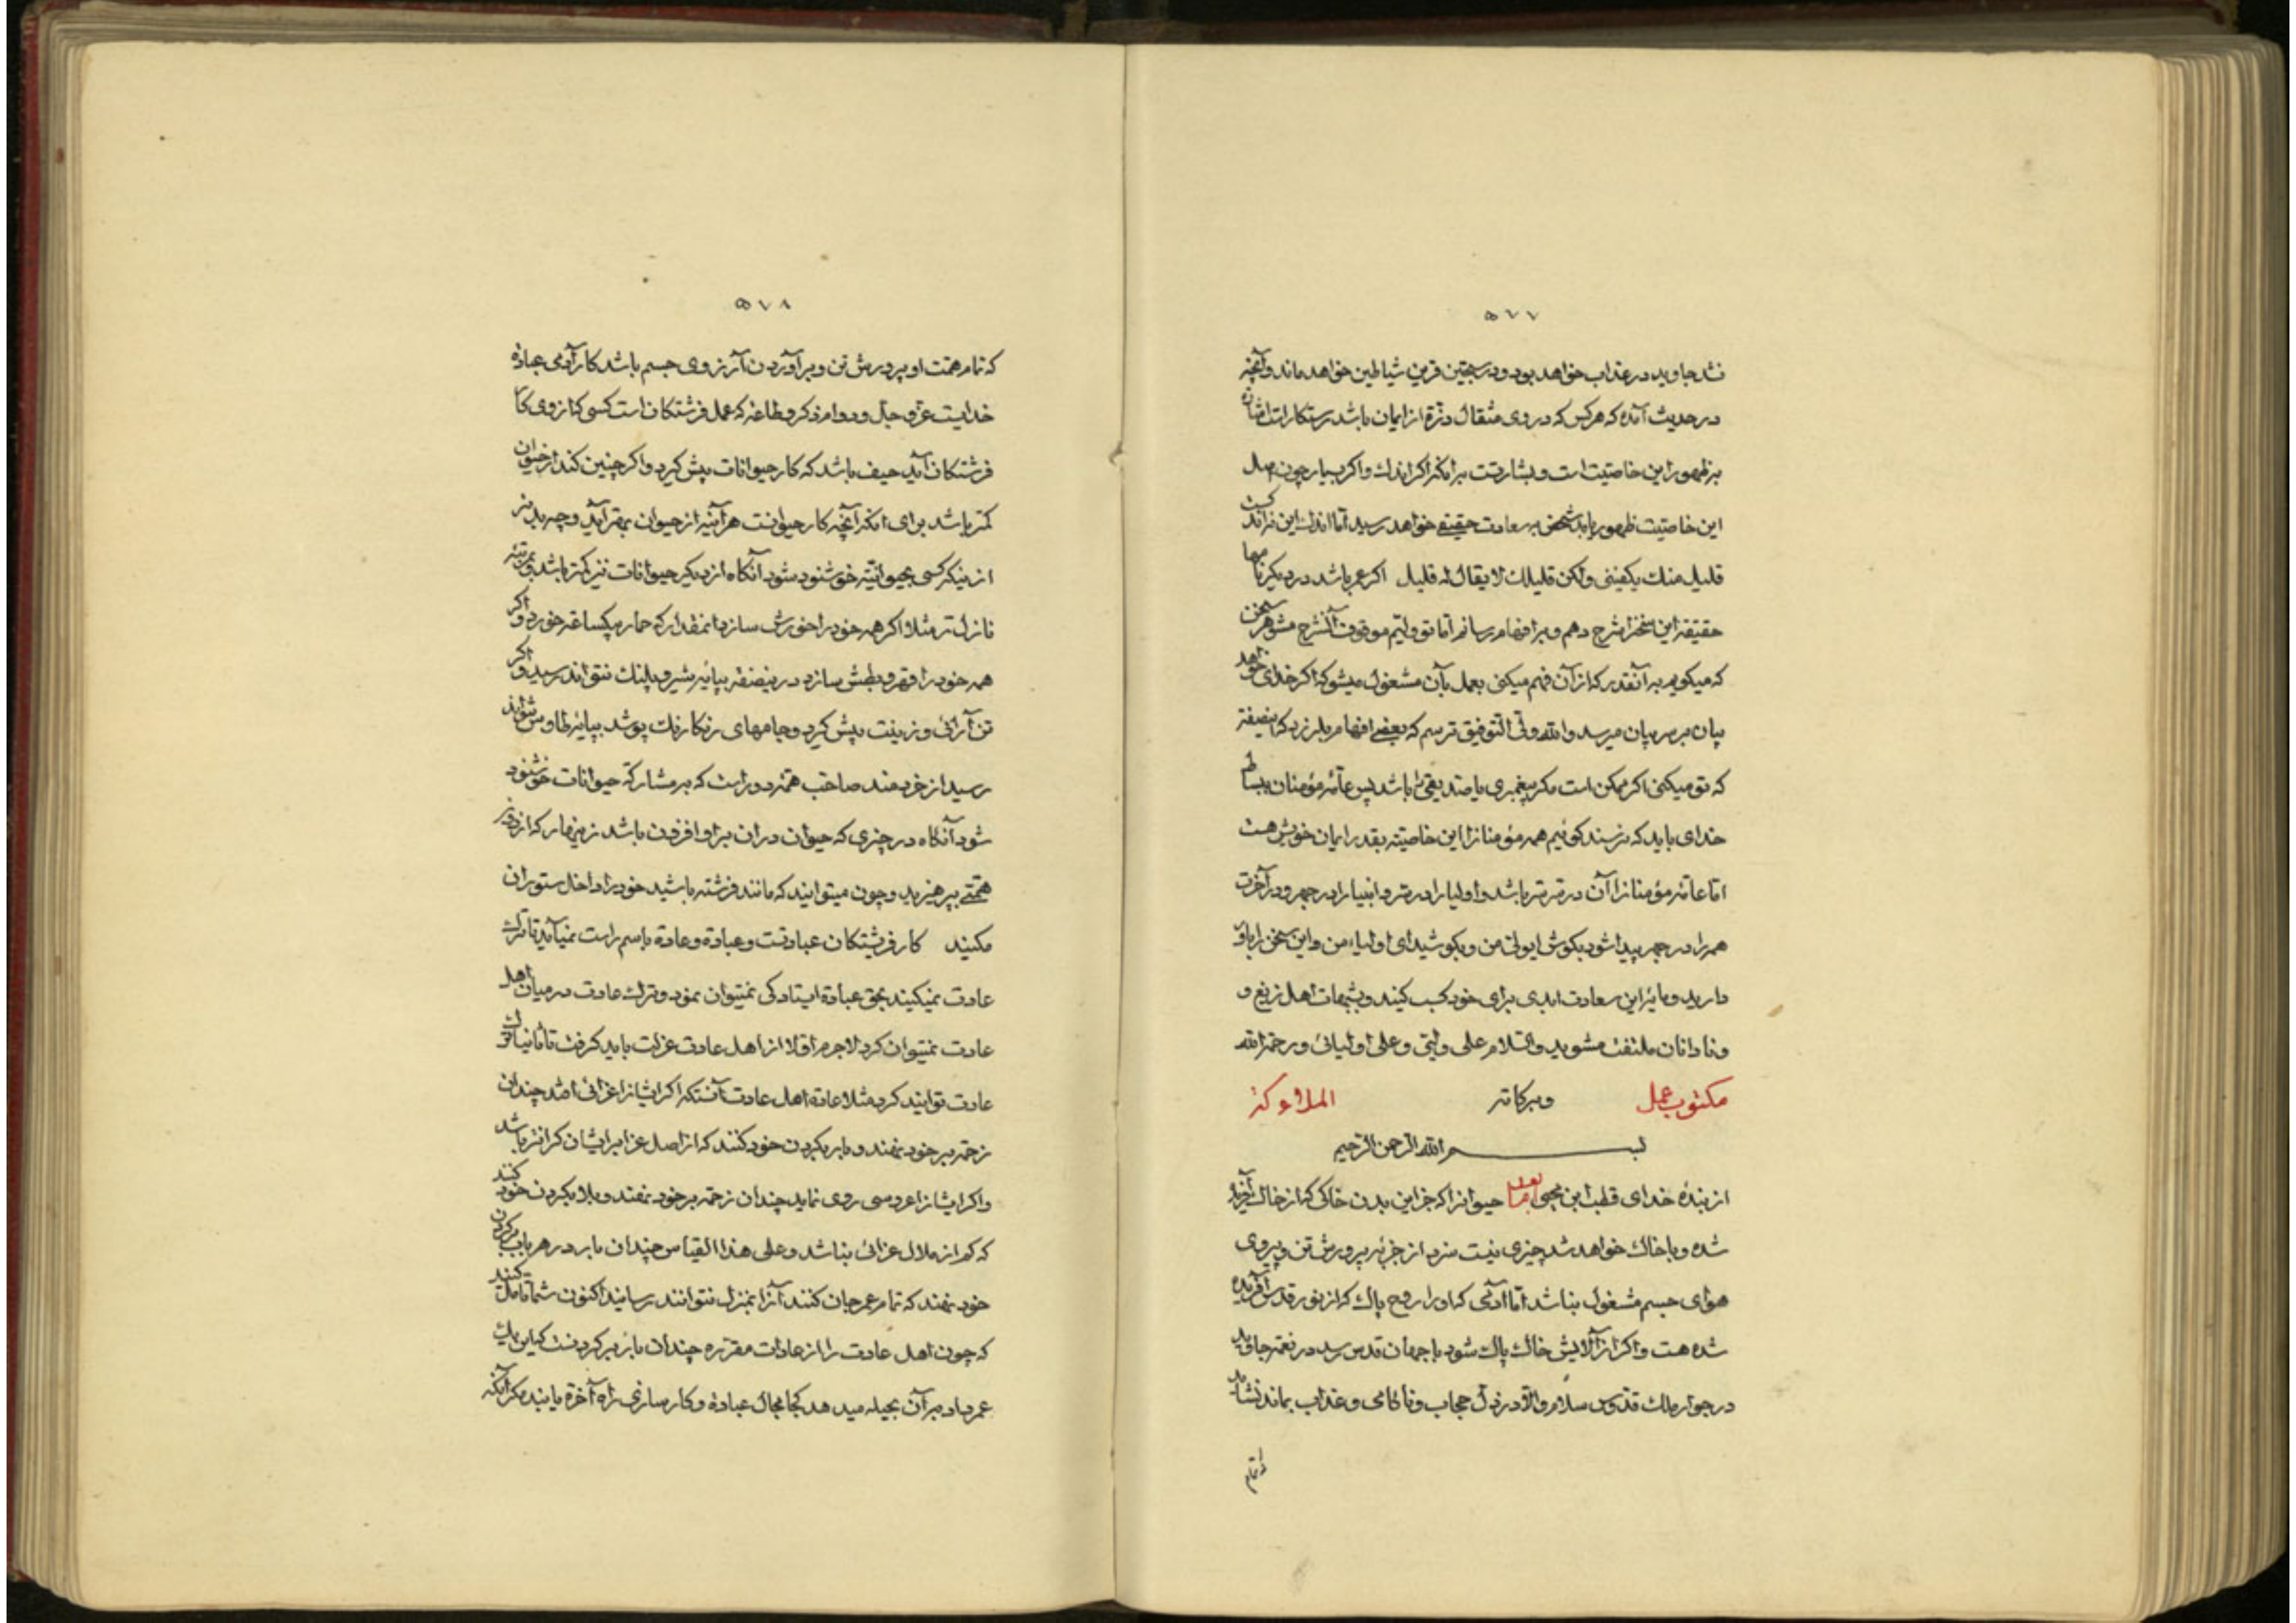 ۵۷۷
نشد جاوید در عذاب خواهد بود و در سجین قرین شیاطین خواهد ماند و آنچه
در حدیث آمده که هر کس که در وی مثقال ذرّة از ایمان باشد رستکار است
بر ظهور این خاصیت است و بشارتست بر انکه اکر اندك و اکر بسیار چون اصل
این خاصیت ظهور یابد شخص به سعادت حقیقی خواهد رسید اما اندك این نه اندکست
قلیل منك یکفینی ولکن قلیلك لا یقال له قلیل اکر عمر باشد در دیکر نامها
حقیقة این سخن را شرح دهم و بر افهام رسانم اما تو ولیّم موقوف آن شرح مشو هر سخن
که میکویم به آنقدر که از آن فهم میکنی بعمل بآن مشغول میشو که اکر خدای خواهد
بیان بر سر بیان میرسد والله ولیّ التوفیق ترسم که بعضی افهام بلرزد که اینصفة
که تو میکنی اکر ممکن است مکر پیغمبری یا صدیقی را باشد پس عامّه مؤمنان
خدای باید که نرسند کوئیم همه مؤمنانرا این خاصیته بقدر ایمان خویش هست
اما عامّه مؤمنانرا آن در سرّ سرّ باشد و اولیا را در سرّ و انبیا را در جهر و در آخرت
همه را در جهر پیدا شود بکوش ای ولی من و بکوشید ای اولیاء من و این سخن را باور
دارید و مایه این سعادت ابدی برای خود کسب کنید و بشبهات اهل زیغ و
و نادانان ملتفت مشوید والسلام علی ولیّی و علی اولیائی و رحمة الله
مکتوب عمل وبرکاته الملائکه
بسم الله الرحمن الرحیم
از بندهٔ خدای قطب ابن محیی حیوانرا که جز این بدن خاکی که از خاك آفریده
شده و با خاك خواهد شد چیزی نیست سزد از جز به پرورش تن و پیروی
هوای جسم مشغول نباشد اما آدمی که او را روح پاك که از نور قدس آفریده
شده هست و اکر از آلایش خاك پاك شود با جهان قدس رسد در نعمة جاوید
در جوار ملك قدوس سلام والّا در ذلّ حجاب و ناکامی و عذاب بماند نشاید
۵۷۸
که تمام همّت او پرورش تن و برآوردن آرزوی جسم باشد کار آدمی عبادة
خدایست عزّ و جلّ و دوام ذکر و طاعة که عمل فرشتکان است کسی که از وی کار
فرشتکان آید حیف باشد که کار حیوانات پیش کیرد و اکر چنین کند از حیوان
کمتر باشد برای انکه آنچه کار حیوانست هر آینه از حیوان بهتر آید و چه بدتر
ازینکه کسی بحیوانیة خوشنود شود آنکاه از دیکر حیوانات نیز کمتر باشد و بمرتبه
نازل تر مثلا اکر همه خود را خورش سازد انمقدار که حمار بیکساعة خورد و اکر
همه خود را قهر و بطش سازد درینصفة بپایه شیر و پلنك نتواند رسید و اکر
تن آرائی و زینت پیش کیرد و جامهای رنکارنك پوشد بپایه طاوس نتواند
رسید از خردمند صاحب همّة دور است که بر مشارکة حیوانات خوشنود
شود آنکاه در چیزی که حیوان در ان بر او افزون باشد زینهار که از دون
همّتی بپرهیزید و چون میتوانید که مانند فرشته باشید خود را داخل ستوران
مکنید کار فرشتکان عبادتست و عبادة و عادة باسم راست نمیآید تا ترك
عادت نمیکنید بحق عبادة ایستادکی نمیتوان نمود و ترك عادت در میان اهل
عادت نمیتوان کرد لاجرم اوّلا از اهل عادت عزلت باید کرفت تا ثانیا ترك
عادت توانید کرد مثلا عادة اهل عادت آنستکه اکر ایشانرا عزائی افتد چندان
زحمة بر خود نهند و بار بکردن خود کنند که از اصل عزا بر ایشان کرانتر باشد
و اکر ایشانرا عروسی روی نماید چندان زحمة بر خود نهند و بلا بکردن خود کنند
که کم از ملال عزائی نباشد و علی هذا القیاس چندان بار در هر باب بر کردن
خود نهند که تمام عمر جان کنند آنرا بمنزل نتوانند رسانید اکنون شما تأمل کنید
که چون اهل عادت را از عادات مقرّره چندان بار بر کردنست که این یك
عمر داد بر آن بحیله میدهد کجا مجال عبادة و کارسازی راه آخرة یابند مکر آنکه